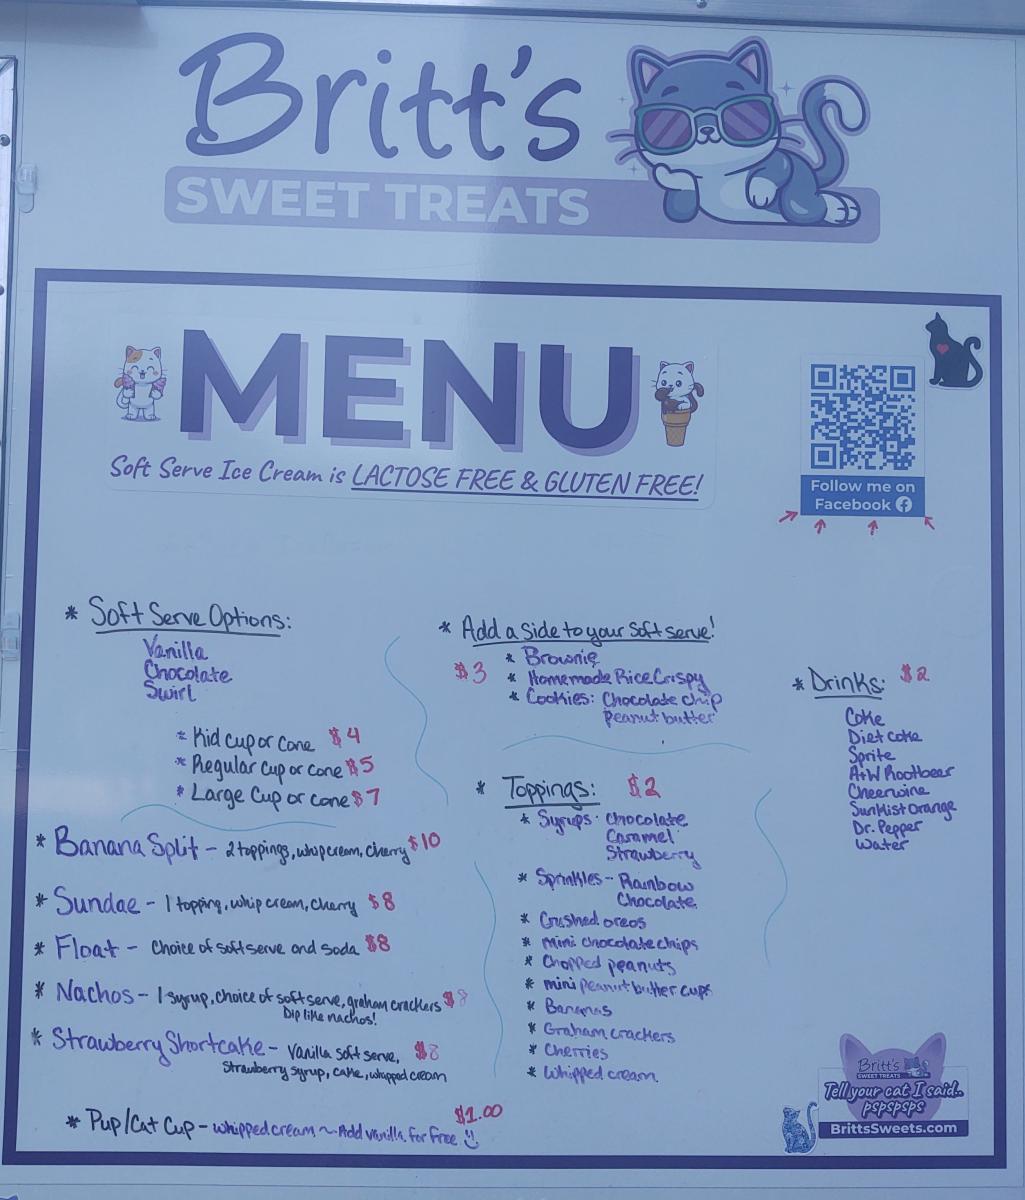 Britt's
SWEET TREATS
MENU
Soft Serve Ice Cream is LACTOSE FREE & GLUTEN FREE!
Follow me on
Facebook
* Soft Serve Options:
Vanilla
Chocolate
Swirl
* Kid cup or cone $4
* Regular cup or cone $5
* Large Cup or cone $7
* Banana Split - 2 toppings, whip cream, cherry $10
* Sundae - 1 topping, whip cream, cherry $8
* Float - Choice of soft serve and soda $8
* Nachos - 1 syrup, choice of soft serve, graham crackers $8
Dip like nachos!
* Strawberry Shortcake - Vanilla soft serve, $8
Strawberry syrup, cake, whipped cream
* Pup/Cat Cup - whipped cream ~ Add vanilla for free $1.00
* Add a side to your soft serve!
$3 * Brownie
* Homemade Rice Crispy
* Cookies: Chocolate chip
Peanut butter
* Toppings: $2
* Syrups: Chocolate
Caramel
Strawberry
* Sprinkles - Rainbow
Chocolate
* Crushed oreos
* mini chocolate chips
* Chopped peanuts
* mini peanut butter cups
* Bananas
* Graham crackers
* Cherries
* Whipped cream
* Drinks: $2
Coke
Diet coke
Sprite
A+W Rootbeer
Cheerwine
Sunkist Orange
Dr. Pepper
Water
Britt's
SWEET TREATS
Tell your cat I said..
pspspsps
BrittsSweets.com